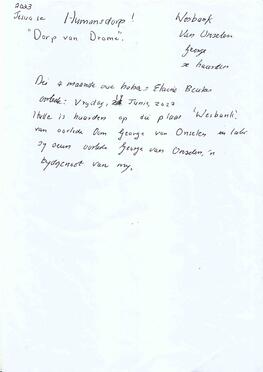 2023
Humansdorp!
"Dorp van Drama".
Wesbank
Van Onselen
George
se huurders
Die 4 maande oue baba: Elaine Beukes
oorlede: Vrydag, Junie, 2027
Hulle is huurders op die plaas 'Wesbank'.
van oorlede Oom George van Onselen en later
sy seun oorlede George van Onselen, 'n
tydgenoot van my.